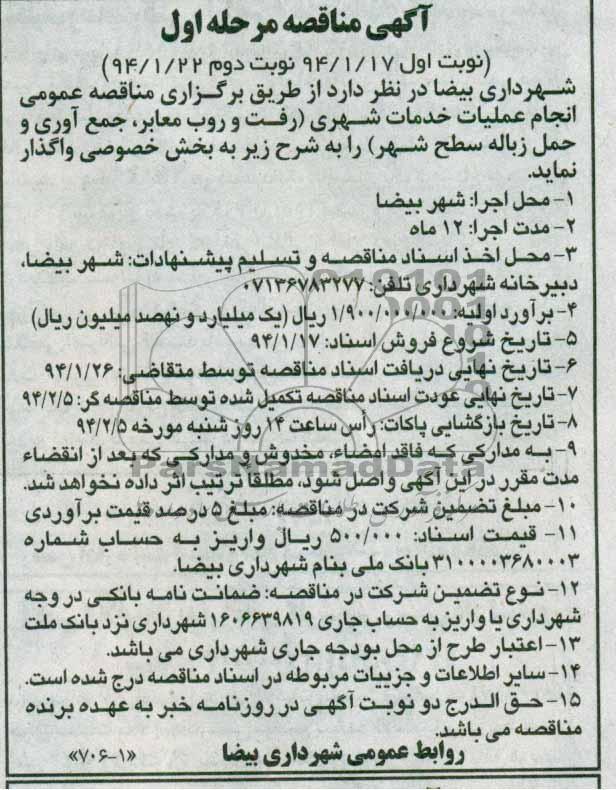 آگهی مناقصه مرحله اول
(نوبت اول ۹۴/۱/۱۷ نوبت دوم ۹۴/۱/۲۲)
شهرداری بیضا در نظر دارد از طریق برگزاری مناقصه عمومی
انجام عملیات خدمات شهری (رفت و روب معابر، جمع آوری و
حمل زباله سطح شهر) را به شرح زیر به بخش خصوصی واگذار
نماید.
۱- محل اجرا: شهر بیضا
۲- مدت اجرا: ۱۲ ماه
۳- محل اخذ اسناد مناقصه و تسلیم پیشنهادات: شهر بیضا،
دبیرخانه شهرداری تلفن: ۰۷۱۳۶۷۸۳۲۷۷
۴- برآورد اولیه: ۱/۹۰۰/۰۰۰/۰۰۰ ریال (یک میلیارد و نهصد میلیون ریال)
۵- تاریخ شروع فروش اسناد: ۹۴/۱/۱۷
۶- تاریخ نهایی دریافت اسناد مناقصه توسط متقاضی: ۹۴/۱/۲۶
۷- تاریخ نهایی عودت اسناد مناقصه تکمیل شده توسط مناقصه گر: ۹۴/۲/۵
۸- تاریخ بازگشایی پاکات: رأس ساعت ۱۴ روز شنبه مورخه ۹۴/۲/۵
۹- به مدارکی که فاقد امضاء، مخدوش و مدارکی که بعد از انقضاء
مدت مقرر در این آگهی واصل شود، مطلقا ترتیب اثر داده نخواهد شد.
ParsNamadData
۱۰- مبلغ تضمین شرکت در مناقصه: مبلغ ۵ درصد قیمت برآوردی
۱۱- قیمت اسناد: ۵۰۰/۰۰۰ ریال واریز به حساب شماره
۳۱۰۰۰۰۳۶۸۰۰۰۳ بانک ملی بنام شهرداری بیضا.
۱۲- نوع تضمین شرکت در مناقصه: ضمانت نامه بانکی در وجه
شهرداری یا واریز به حساب جاری ۱۶۰۶۶۳۹۸۱۹ شهرداری نزد بانک ملت
۱۳- اعتبار طرح از محل بودجه جاری شهرداری می باشد.
۱۴- سایر اطلاعات و جزییات مربوطه در اسناد مناقصه درج شده است.
۱۵- حق الدرج دو نوبت آگهی در روزنامه خبر به عهده برنده
مناقصه می باشد.
روابط عمومی شهرداری بیضا «۷۰۶-۱»